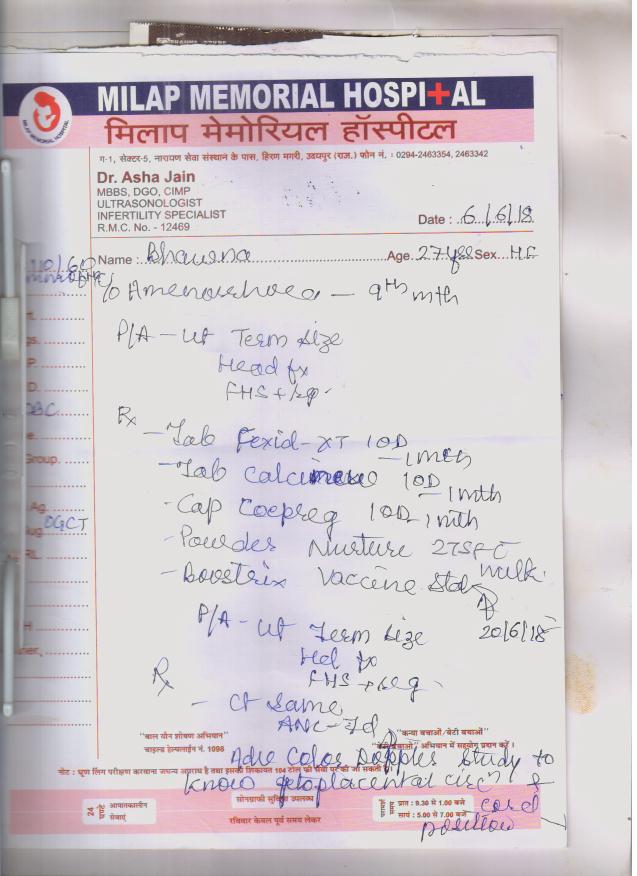 MILAP MEMORIAL HOSPITAL
मिलाप मेमोरियल हॉस्पीटल
MILAP MEMORIAL HOSPITAL
ग-1, सेक्टर-5, नारायण सेवा संस्थान के पास, हिरण मगरी, उदयपुर (राज.) फोन नं. : 0294-2463354, 2463342
Dr. Asha Jain
MBBS, DGO, CIMP
ULTRASONOLOGIST
INFERTILITY SPECIALIST
R.M.C. No. - 12469
Date : 6/6/18
Name : Bhawna Age 27 yrs Sex
Amenorrhoea - 9th mth
P/A - ut Term size
Head fx
FHS + reg.
Rx
- Tab Fexid-XT 1OD
- 1 mth
- Tab 1OD
- 1 mth
- Cap Coepreg 1OD - 1 mth
- Powder Nurture 2TSF C milk
- Boostrix Vaccine
20/6/18
P/A - ut Term size
Hd fx
FHS + reg.
Rx
- Ct Same
ANC - 7d
Adv Color Doppler Study to
know fetoplacental circ & cord
position
"बाल यौन शोषण अभियान"
चाइल्ड हेल्पलाईन नं. 1098
"कन्या बचाओं/बेटी बचाओं"
अभियान में सहयोग प्रदान करें।
नोट : भ्रूण लिंग परीक्षण करवाना जघन्य अपराध है तथा इसकी शिकायत 104 टोल फ्री पर की जा सकती
24 घण्टे
आपातकालीन
सेवाएं
सोनोग्राफी सुविधा उपलब्ध
रविवार केवल पूर्व समय लेकर
परामर्श समय
प्रात : 9.30 से 1.00 बजे
सायं : 5.00 से 7.00 बजे
OGCT
Group.